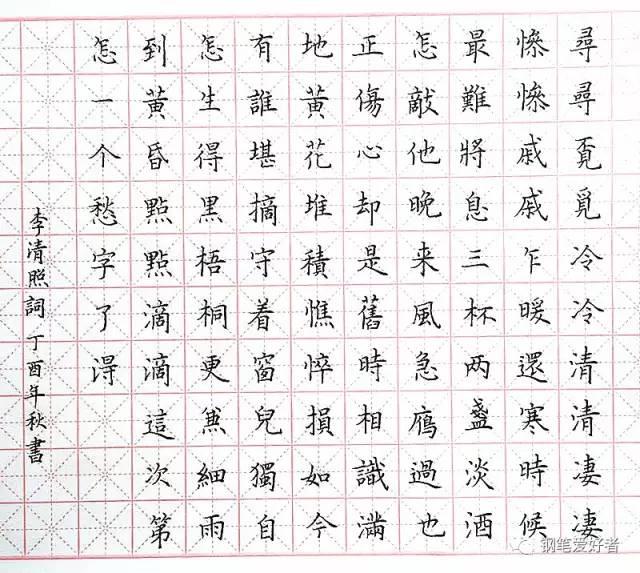 尋尋覔覓冷冷清清凄凄
慘慘戚戚乍暖還寒時候
最難將息三杯两盞淡酒
怎敵他晚来風急鴈過也
正傷心却是舊時相識滿
地黃花堆積憔悴損如今
有誰堪摘守着窗兒獨自
怎生得黑梧桐更兼細雨
到黃昏點點滴滴這次第
怎一个愁字了得
李清照詞丁酉年秋書
钢笔爱好者